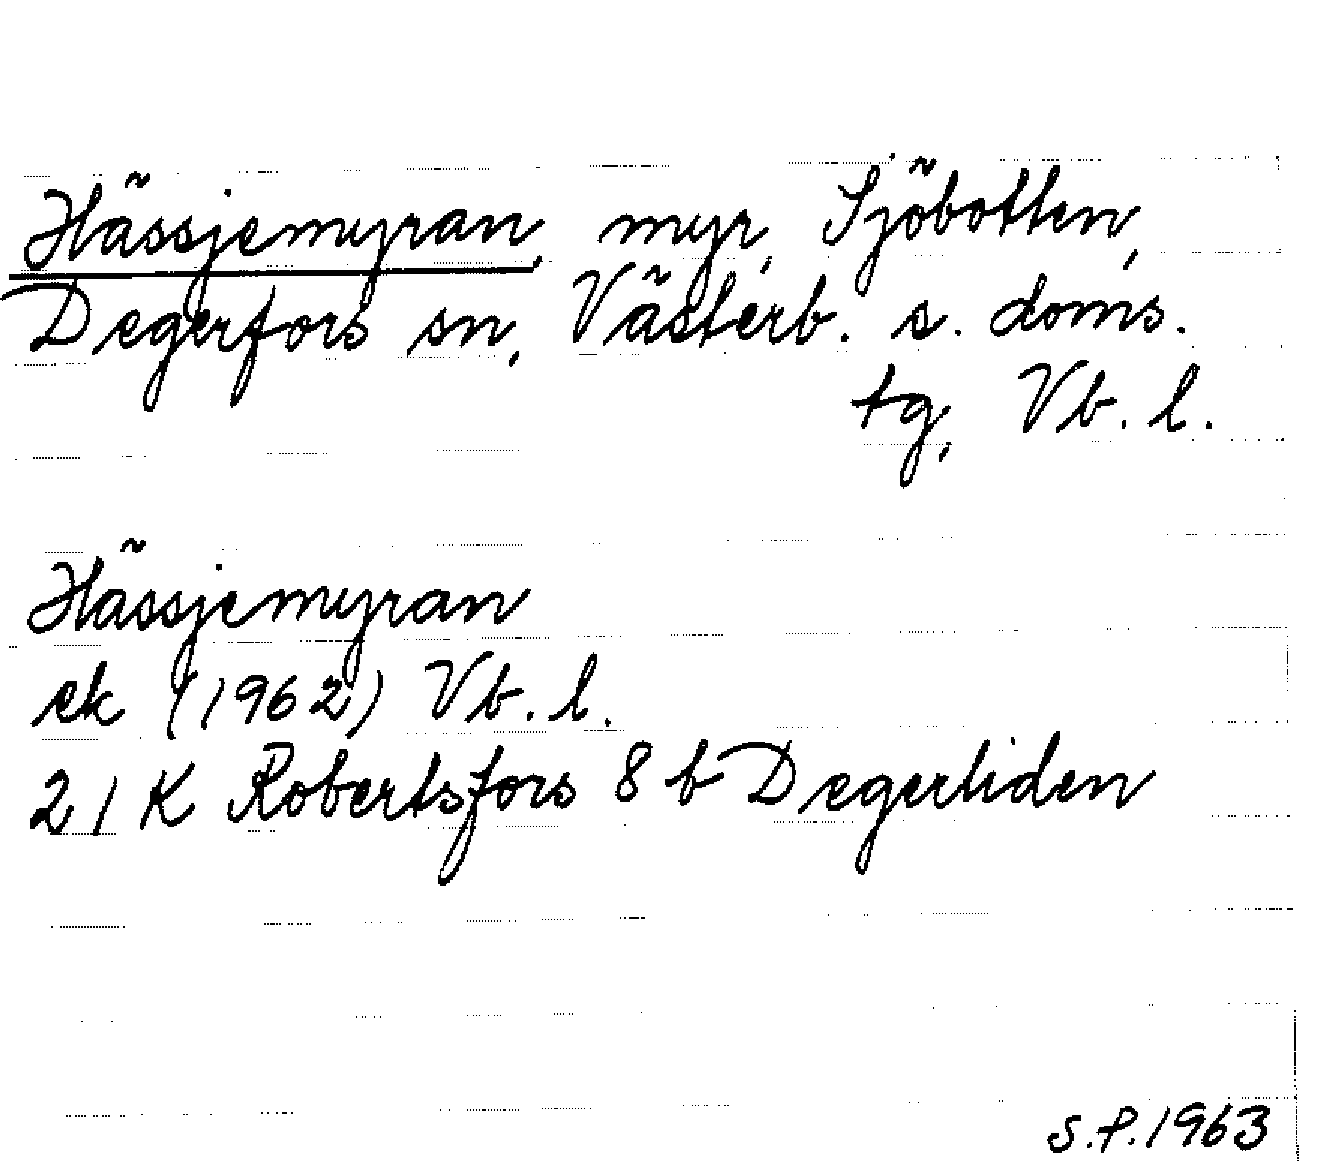 Hässjemyran, myr, Sjöbotten,
Degerfors sn, Västerb. s. doms.
tg, Vb. l.
Hässjemyran
ek (1962) Vb. l.
21 K Robertsfors 8 b Degerliden
S.P. 1963